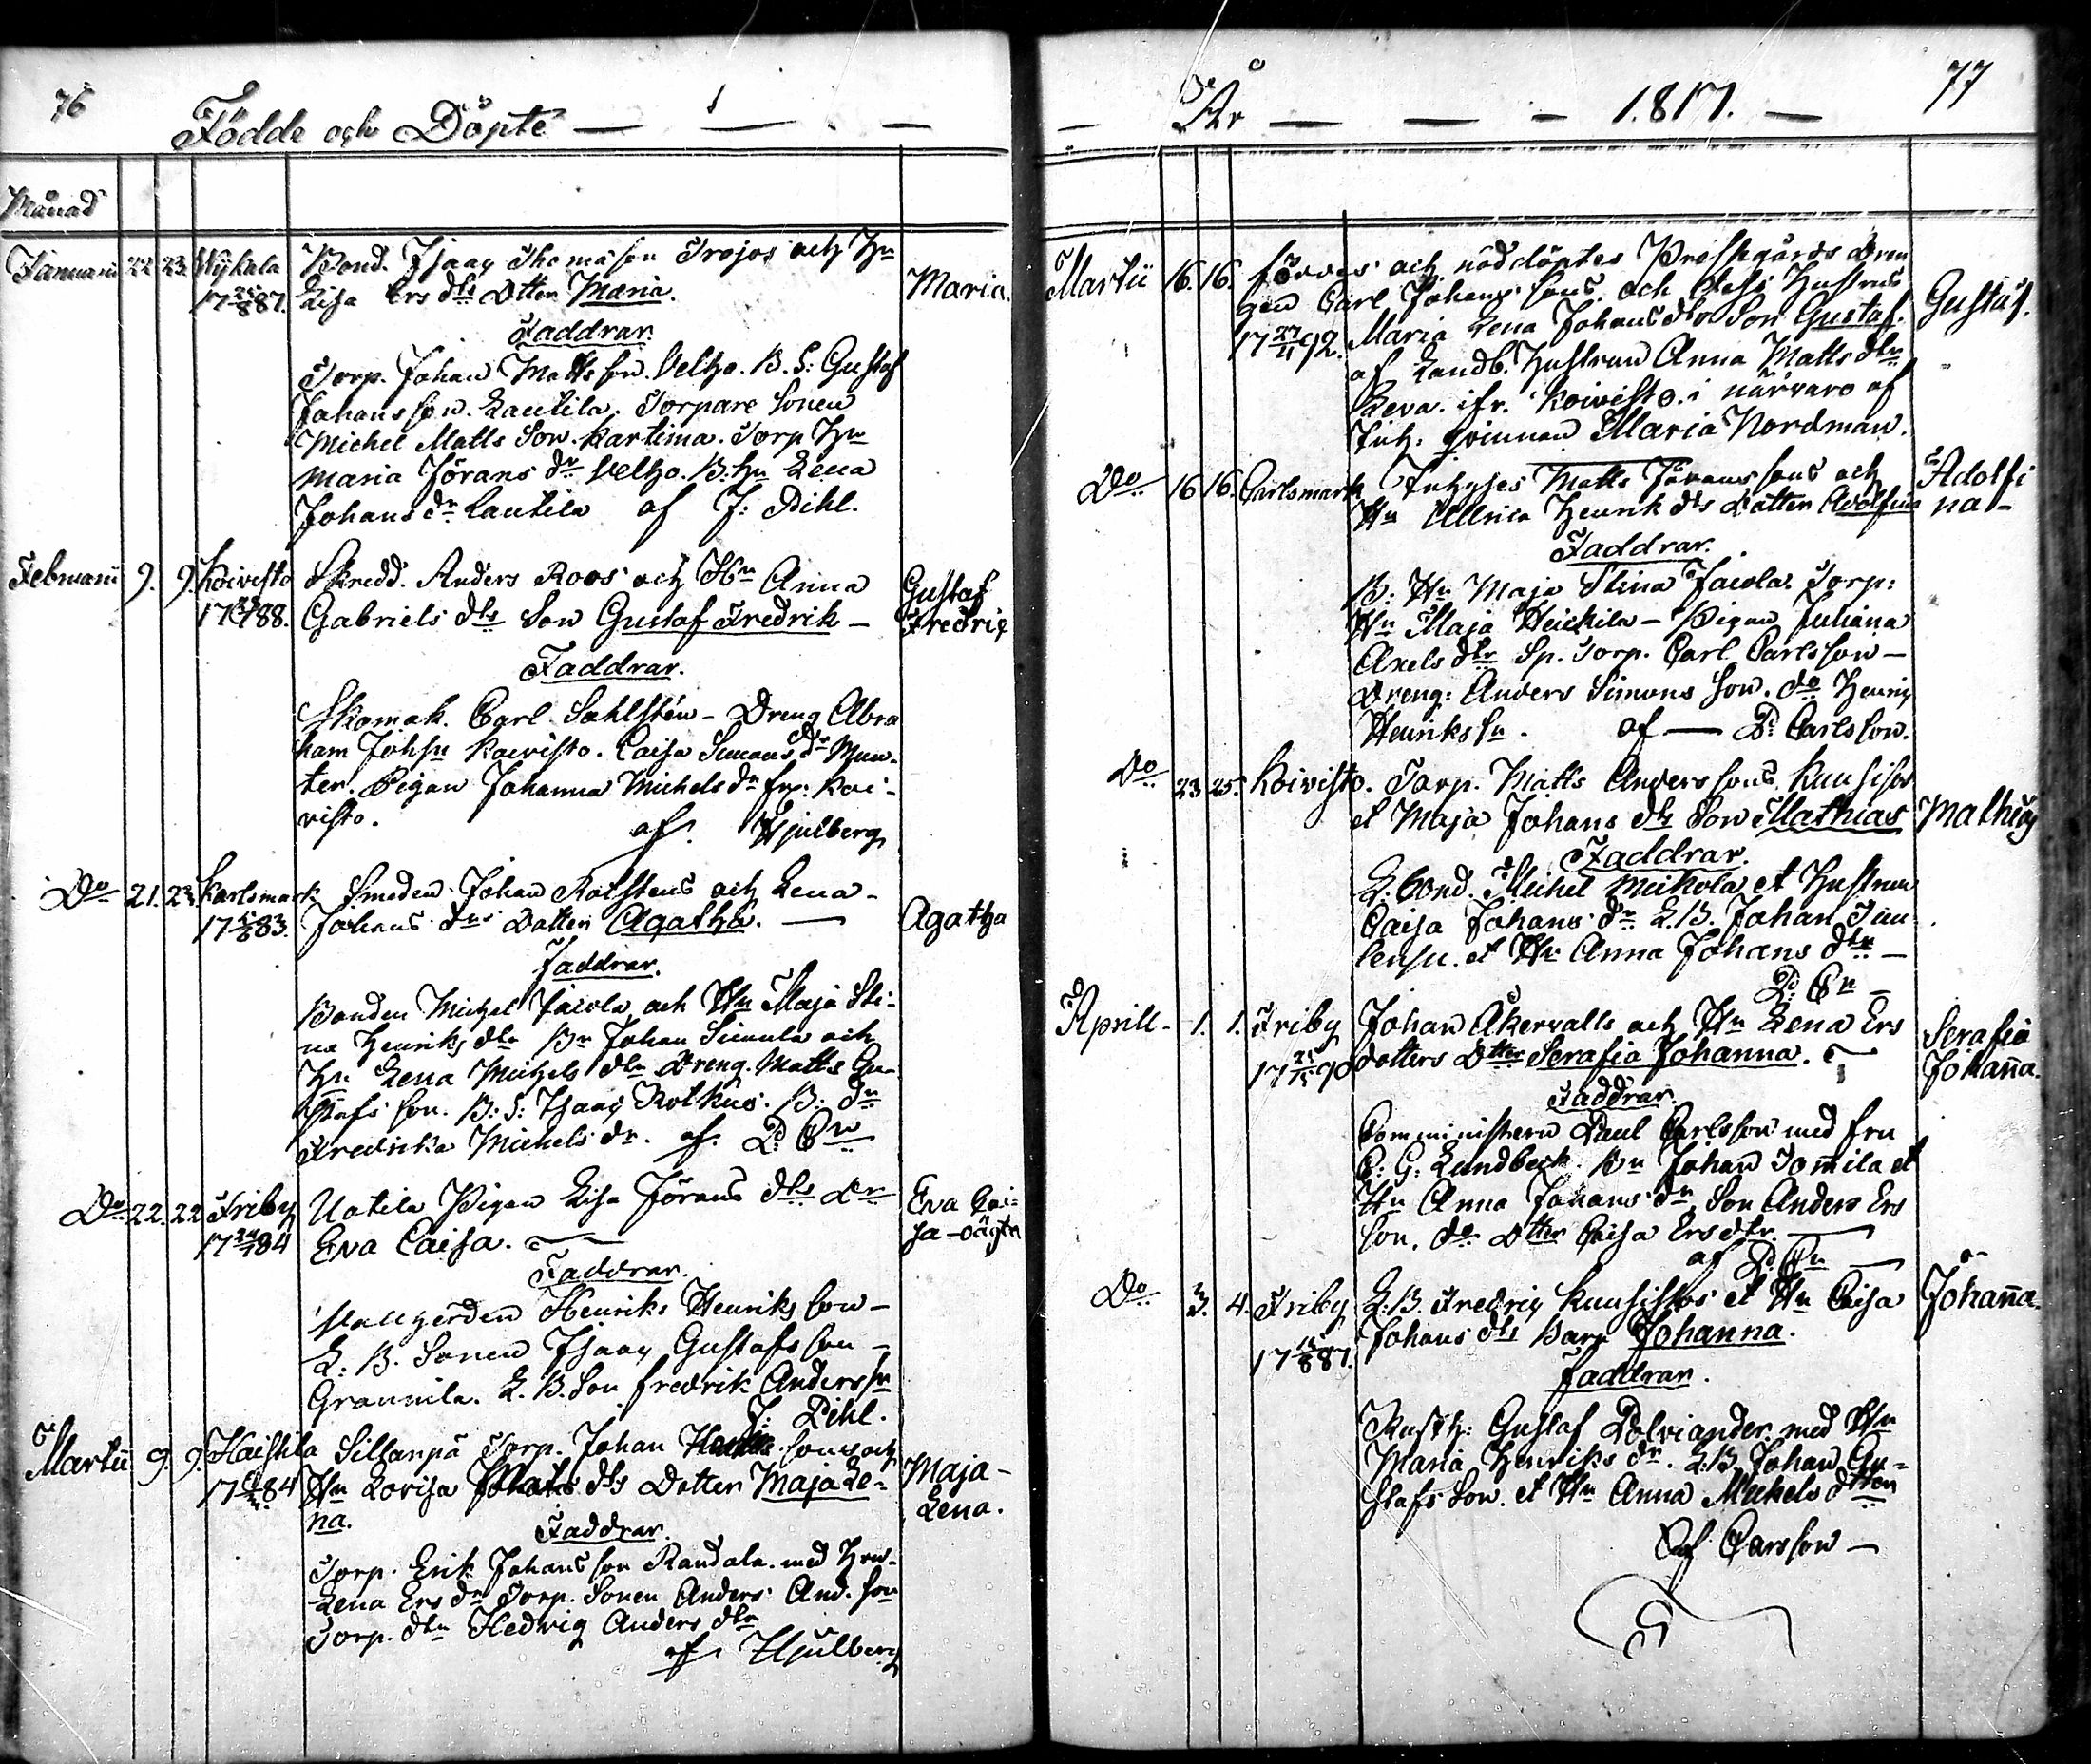 76
Födde och Döpte
Månad
Januarii 22 23 Wijkala Bond. Isaac Thomasson Trojos och Hu
17 25/8 87. Lisa Ers dts Dotter Maria. Maria.
Faddrar.
Torp. Johan Mattsson. Veltzo. B. S: Gustaf
Johansson. Lautila. Torpare Sonen
Michel Matts Son. Kartima. Torp Hu
Maria Jörans dr Veltzo. B. hu Lena
Johans dr Lautila af J: Pihl.
Februarii 9. 9. Koivisto Skredd. Anders Roos och Hu Anna Gustaf
88. Gabriels dts Son Gustaf Fredrik – Fredric
Faddrar.
Skomak. Carl Sahlstén – Dreng Abra
ham Johsn Koivisto. Caisa Simons dr Mun-
ter. Pigan Johanna Michels dr frp: Koi-
visto. af Hjulberg
Do 21. 23 Karlsmark Smeden Johan Rolstens och Lena
17 83. Johans dtrs Dotter Agatha. Agatha
Faddrar.
Bonden Michel Jacola och Hu Maja Sti-
na Henriks dtr Bn Johan Simula och
Hu Lena Michels dtr Dreng. Matts Gu-
stafs son. B: S: Isaac Rotkus. B: dr
Fredrika Michels dr. af. P. Cn
Do 22. 22 Friby Uotila Pigan Lisa Jörans dts dr Eva Cai-
17 84 Eva Caisa. sa – oägta
Faddrar.
Henriks Henriks son –
L: B. Sonen Isaac Gustafsson –
Grannila. L. B. Son Fredrik Anderssn
J: Pihl.
Martii 9. 9. Haistila Sillanpä Torp. Johan sons och Maja-
17 84 Hu Lovisa dts Dotter Maja Le- Lena.
na.
Faddrar.
Torp. Erik Johansson Randala. med Hru-
Lena Ers dr Torp. Sonen Anders And. son
Torp. dtr Hedvig Anders dtr
af Hjulberg
År 1817. 77
Martii 16. 16. föddes och nöddöptes Prostgårds dren
gen Carl Johans sons. och dess Hustrus Gustaf.
17 27/11 92. Maria Lena Johans dtr Son Gustaf.
af Landb. Hustrun Anna Matts dtr
Leva. ifr. Koivisto. i närvaro af
Inh. qvinnan Maria Nordman.
Do 16 16. Carlsmark Inhyses Matts Jöransons och Adolfi
Hu Ulrica Henrik dts Dotter Adolfina na –
Faddrar.
B. Hu Maja Stina Jacola. Torp:
Hu Maja Heickila – Pigan Juliana
Axels dtr Sp. Torp. Carl Carlsson –
Dreng: Anders Simons Son. do Henric
Henrikssn. af — P. Carlsson.
Do 23 25. Koivisto. Torp. Matts Anderssons Kuusisos
et Maja Johans dts Son Mathias Mathias
Faddrar.
L. bond. Michel Mickola et Hustrun
Caisa Johans dr L. B. Johan
et Hu Anna Johans dtr –
P. Cn
Aprill – 1. 1. Friby Johan Åkervalls och Hu Lena Ers Serafia
17 90 dotters Dotter Serafia Johanna. Johanna.
Faddrar.
Comministern Paul Carlsson med Fru
C: G: Lundbeck. Bn Johan Tommila et
Hu Anna Johans dr Son Anders Ers
son. do Dtter Caisa Ersdtr.
af P. Cn
Do 3. 4. Friby L: B. Fredric Kuusistos et Hu Caisa Johanna.
17 87. Johans dts Barn Johanna.
Faddrar.
Rusth: Gustaf Polviander med Hu
Maria Henriks dr. L. B. Johan Gu-
stafs Son. et Hu Anna Michels dtter
af Carsson –